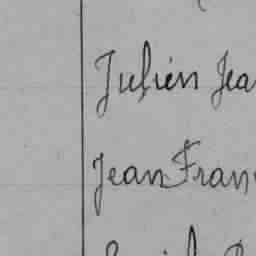 Julien Jea
Jean Fran